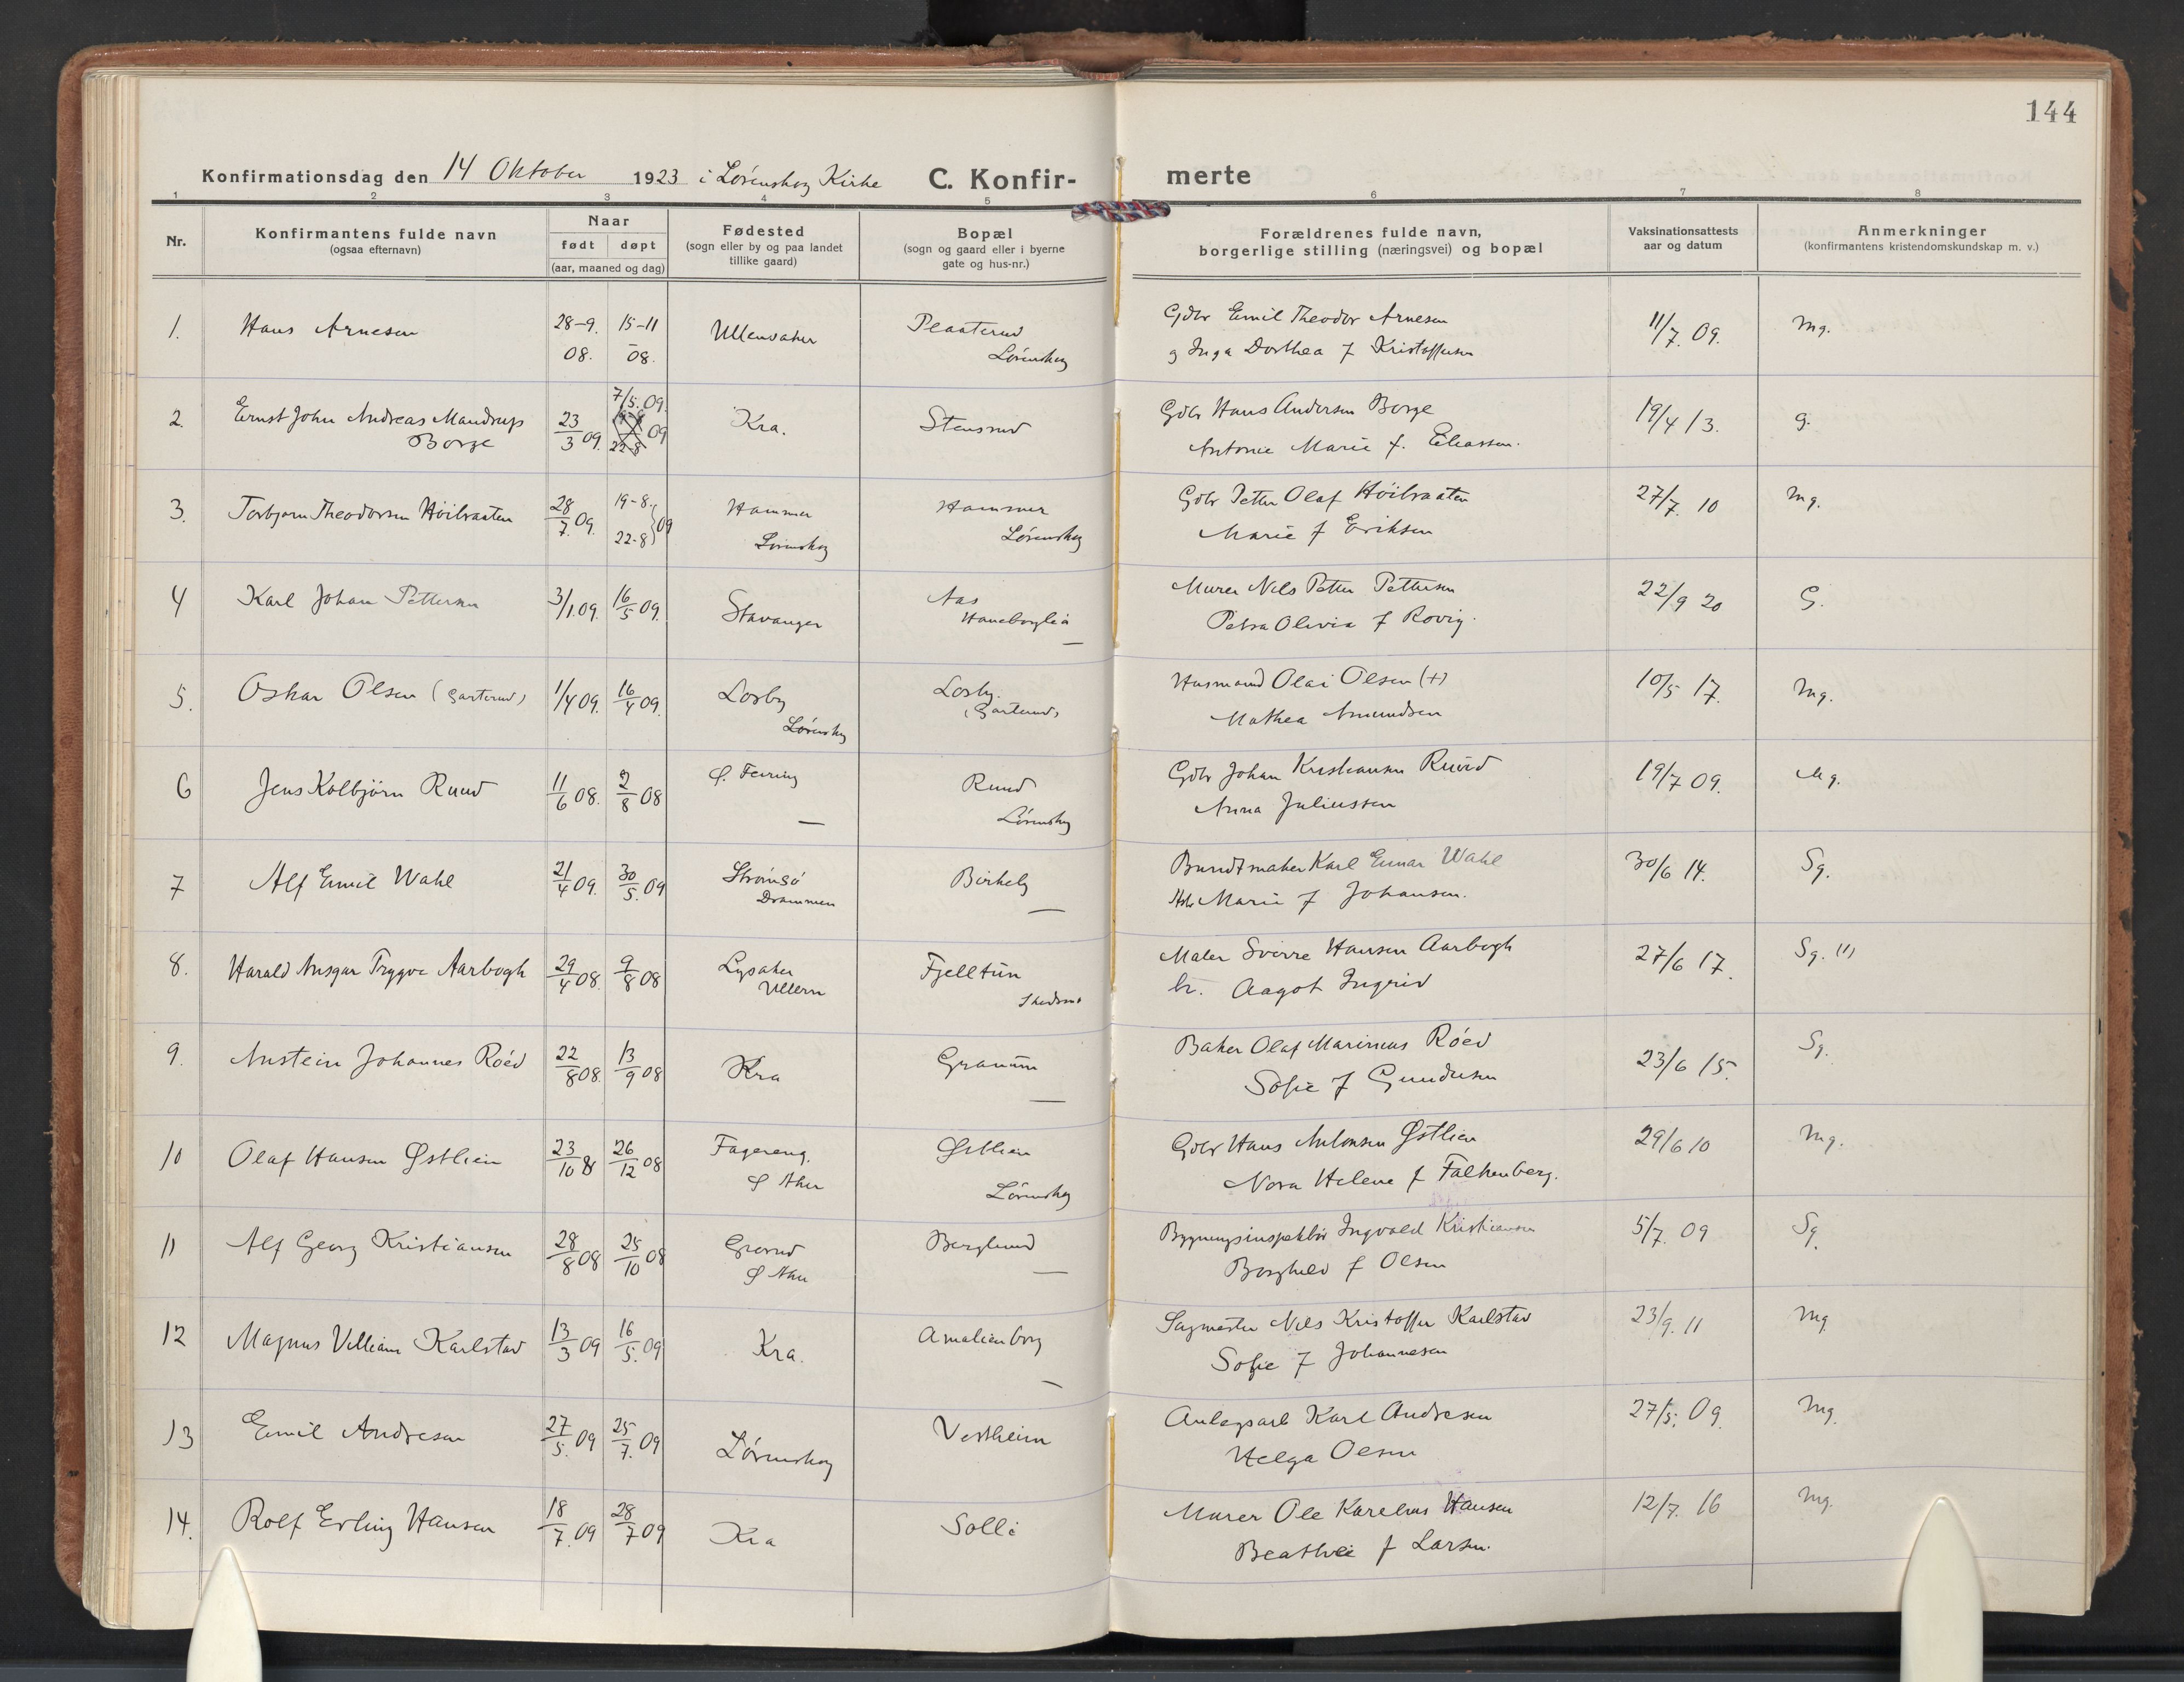 144
Konfirmationsdag den 14 Oktober 1923 i Lørenskog Kirke C. Konfir- merte
1 2 3 4 5 6 7 8
Nr. Konfirmantens fulde navn (ogsaa efternavn) Naar født døpt (aar, maaned og dag) Fødested (sogn eller by og paa landet tillike gaard) Bopæl (sogn og gaard eller i byerne gate og hus-nr.) Forældrenes fulde navn, borgerlige stilling (næringsvei) og bopæl Vaksinationsattests aar og datum Anmerkninger (konfirmantens kristendomskundskap m. v.)
1. Hans Arnesen 28-9. 15-11 Ullensaker Plaaterud Gdbr Emil Theodor Arnesen 11/7. 09. Mg.
08. 08. Lørenskog og Inga Dorthea f Kristoffersen
7/5.09.
2. Ernst John Andreas Mandrup 23/3 09. 22-8 09 Kra. Stensrud Gdbr Hans Andersen Borge 19/4 13. g.
Borge Antonie Marie f. Eliassen.
3. Torbjørn Theodorsen Høibraaten 28/7. 09. 19-8. 22-8 } 09 Hammer Hammer Gdbr Petter Olaf Høibraaten 27/7. 10 Mg.
Lørenskog Lørenskog Marie f Eriksen
4 Karl Johan Pettersen 3/1.09. 16/5 09. Stavanger Aas Murer Nils Petter Pettersen 22/9 20 G.
Haneborglia — Petra Olivia f Rovig.
5. Oskar Olsen (Garterud) 1/4 09. 16/4 09. Losby Losby. Husmand Olai Olsen (+) 10/5 17. Mg.
Lørenskog (Garterud) Mathea Amundsen
6 Jens Kolbjørn Ruud 11/6 08. 2/8 08 Ø. Feiring Ruud Gdbr Johan Kristiansen Ruud 19/7 09. Mg.
— Lørenskog Anna Juliussen
7 Alf Emil Wahl 21/4 09. 30/5. 09 Strømsø Birkely Bundtmaker Karl Einar Wahl 30/6 14. Sg.
Drammen — Marie f Johansen.
8. Harald Ansgar Trygve Aarbogh 29/4 08. 9/8 08 Lysaker Fjelltun Maler Sverre Hansen Aarbogh 27/6 17. Sg. (1)
Ullern Skedsmo Aagot Ingrid
9. Anstein Johannes Røed 22/8 08. 13/9 08 Kra Granum Baker Olaf Marinius Røed 23/6 15. Sg.
— Sofie f Gundersen
10 Olaf Hansen Østlien 23/10 8 26/12 08 Fagereng. Østlien Gdbr Hans Antonsen Østlien 29/6 10 Mg.
Ø Aker Lørenskog Nora Helene f Falkenberg.
11 Alf Georg Kristiansen 28/8 08 25/10 08 Grorud Berglund Bygningsinspektør Ingvald Kristiansen 5/7. 09 Sg.
Ø Aker — Borghild f Olsen
12 Magnus Villiam Karlstad 13/3 09 16/5. 09 Kra. Amalienborg Sagmester Nils Kristoffer Karlstad 23/9. 11 Mg
— Sofie f Johannesen
13 Emil Andresen 27/5. 09 25/7. 09 Lørenskog Vestheim Anlegsarb Karl Andresen 27/5. 09. Mg.
Helga Olsen
14. Rolf Erling Hansen 18/7. 09 28/7 09 Kra Solli Murer Ole Karelius Hansen 12/7. 16 Mg.
Beathe f Larsen.